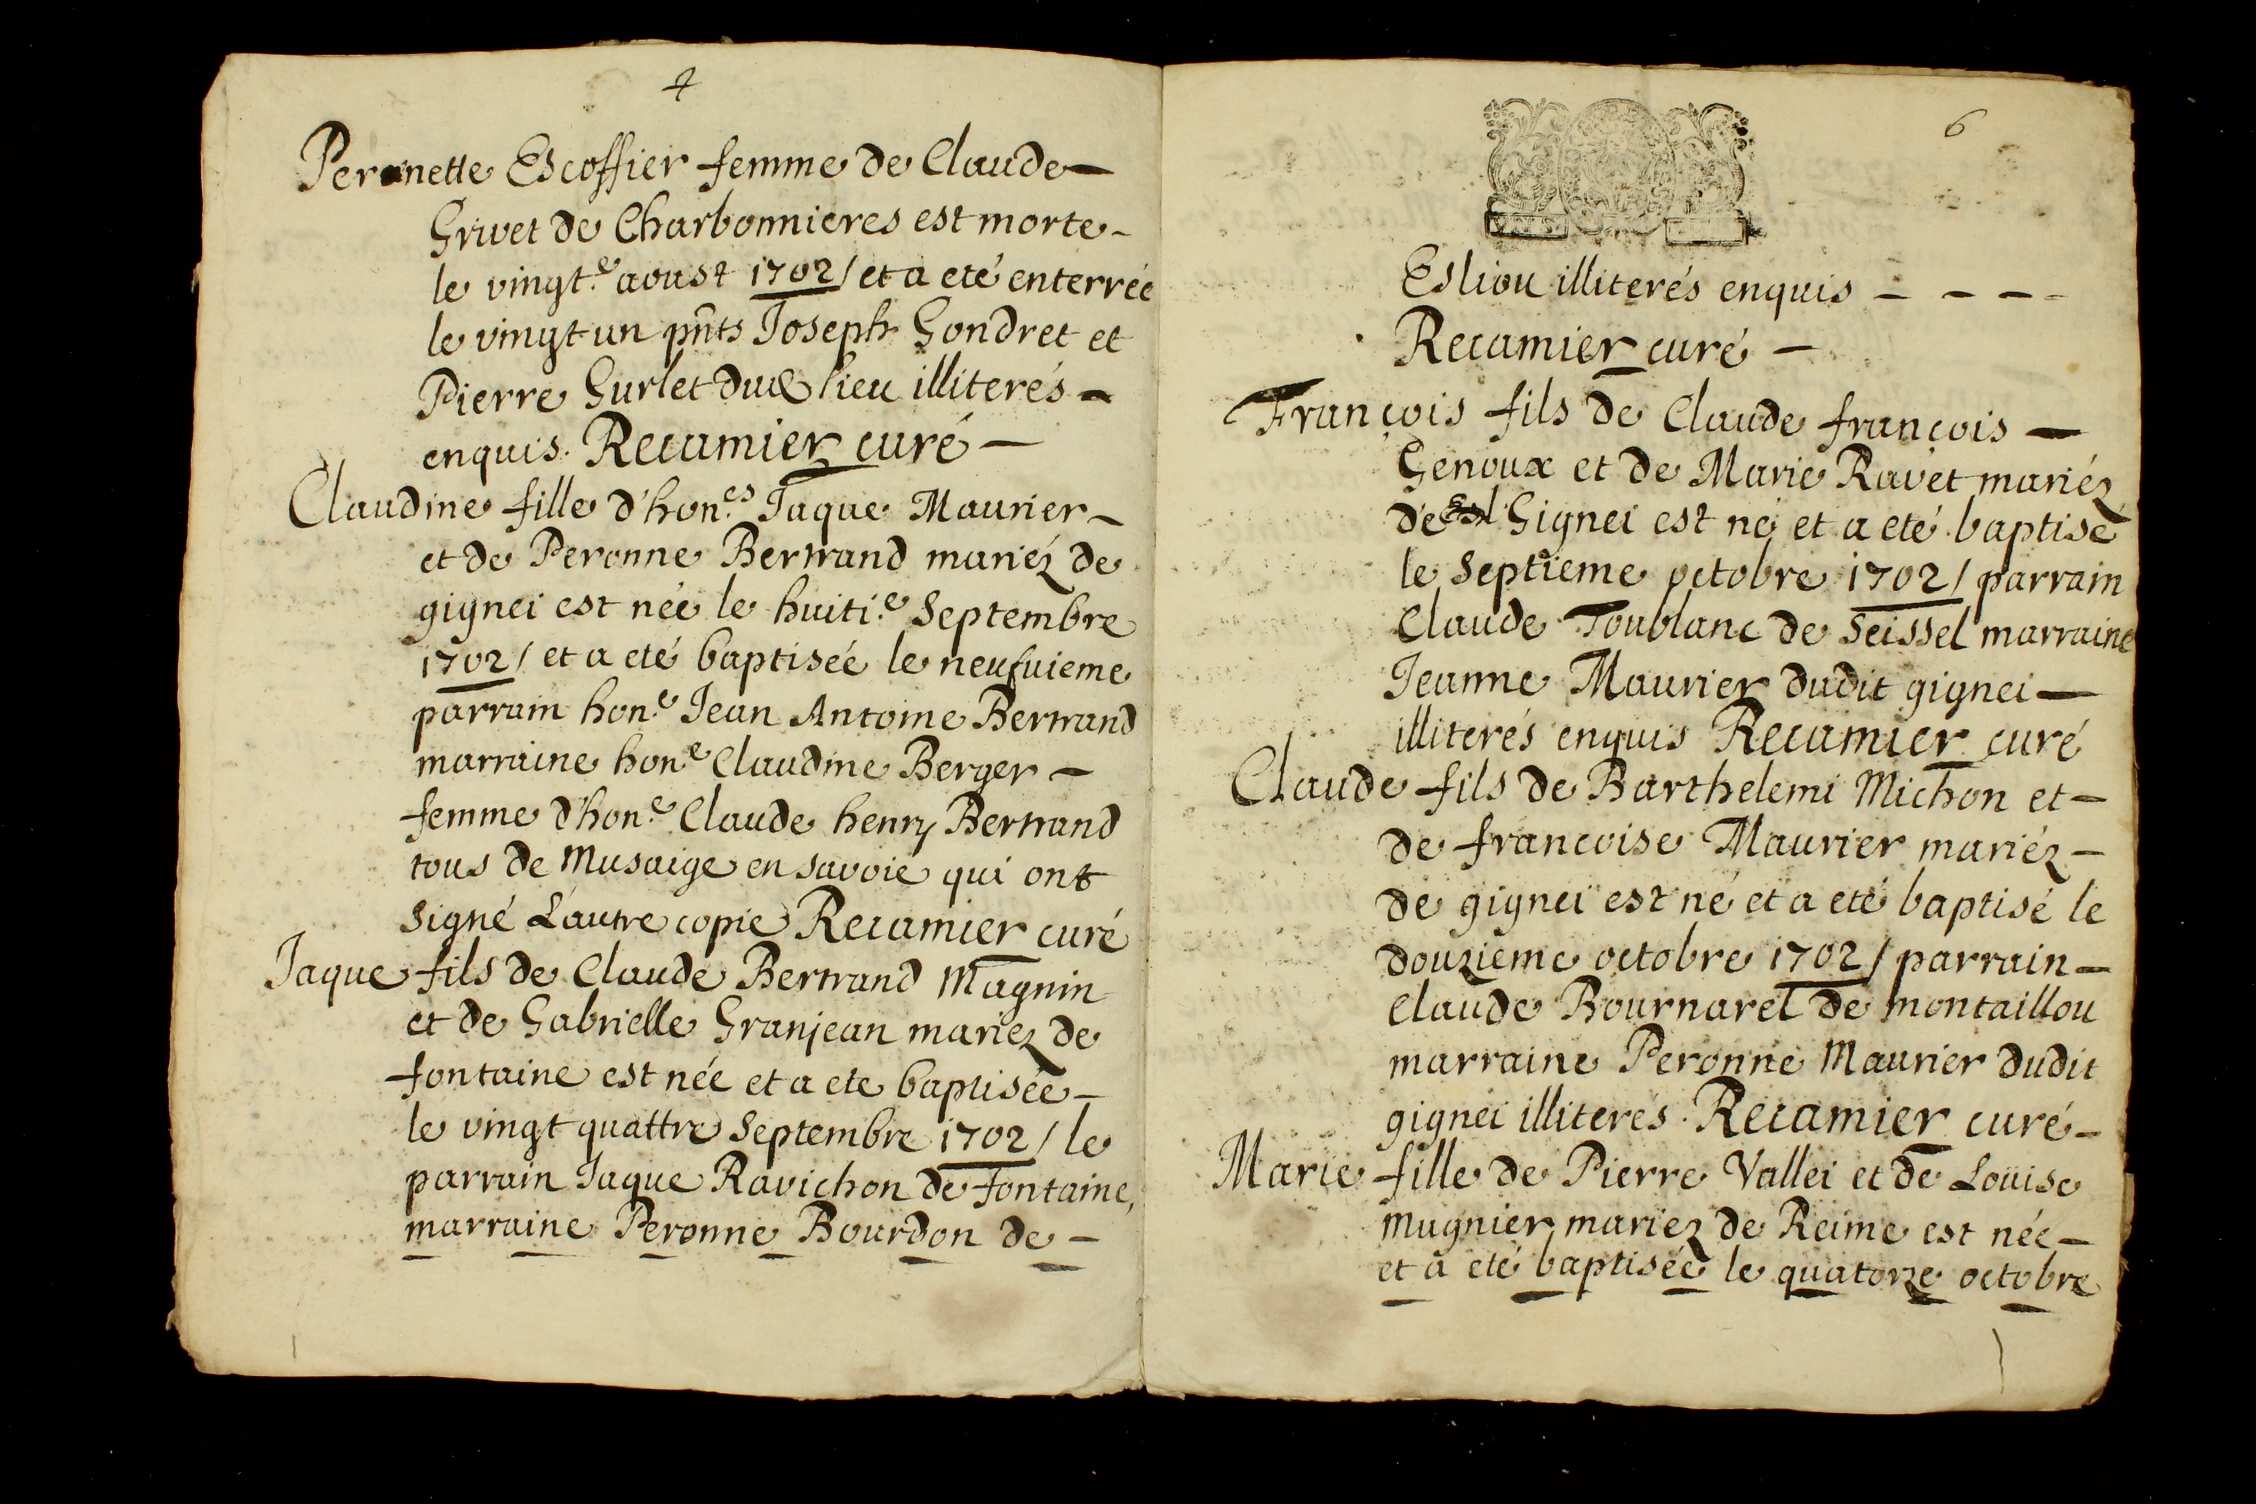 4
Peronette Escoffier femme de Claude —
Grivet de Charbonnieres est morte -
le vingt.e aoust 1702 / et a eté enterrée
le vingt un pnts Joseph Gondret et
Pierre Gurlet dud lieu illiterés -
enquis. Recamier curé —
Claudine fille d'hon.es Jaque Maurier -
et de Peronne Bertrand mariéz de
gignei est née le huiti.e Septembre
1702 / et a eté baptisée le neufuieme
parrain hon.e Jean Antoine Bertrand
marraine hon.e Claudine Berger —
femme d'hon.e Claude henry Bertrand
tous de Musaige en savoie qui ont
signé L'autre copie Recamier curé
Jaque fils de Claude Bertrand Magnin
et de Gabrielle Granjean mariez de
fontaine est née et a ete baptisée -
le vingt quattre Septembre 1702 / le
parrain Jaque Ravichon de fontaine,
marraine Peronne Bourdon de -
6
Esliou illiterés enquis - - - -
Recamier curé —
François fils de Claude françois —
Genoux et de Marie Ravet mariéz
de Gignei est né et a eté baptisé
le Septieme octobre 1702 / parrain
Claude Toublanc de Seissel marraine
Jeanne Maurier dudit gignei —
illiterés enquis Recamier curé
Claude fils de Barthelemi Michon et -
de francoise Maurier mariéz -
de gignei est né et a eté baptisé le
douzieme octobre 1702 / parrain -
Claude Bournarel de montaillou
marraine Peronne Maurier dudit
gignei illiterés. Recamier curé -
Marie fille de Pierre Vallei et de Louise
Mugnier mariez de Reime est née -
et a eté baptisée le quatorze octobre